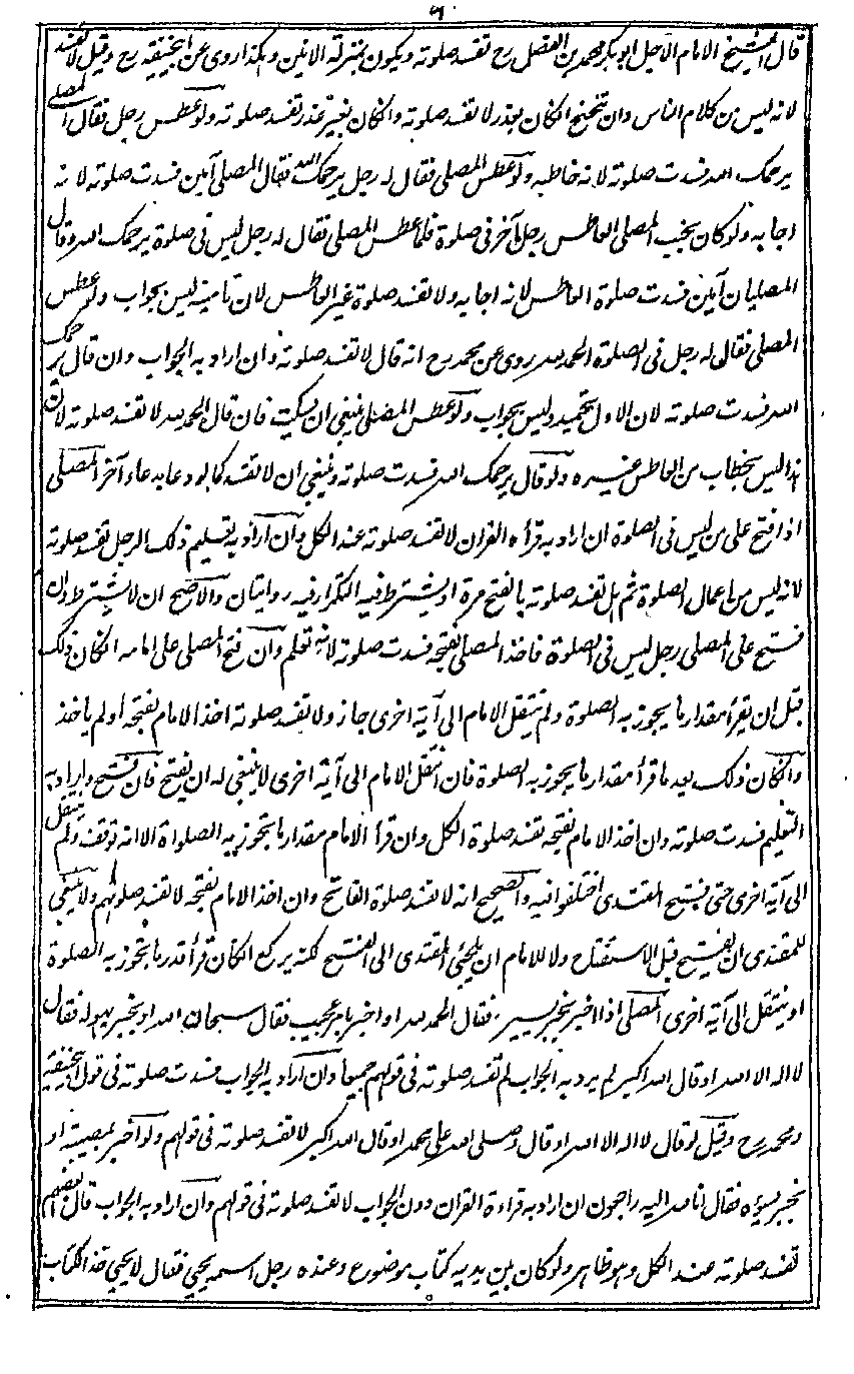 قال الشيخ الامام الاجل ابو بكر محمد بن الفضل رح تفسد صلوته ويكون بمنزلة الانين وهكذا روى عن ابيحنيفة رح وقيل لا تفسد
لانه ليس من كلام الناس وان تنحنح انكان بعذر لا تفسد صلوته وانكان بغير عذر تفسد صلوته ولو عطس رجل فقال المصلى
يرحمك الله فسدت صلوته لانه خاطبه ولو عطس المصلى فقال له رجل يرحمك الله فقال المصلى آمين فسدت صلوته لانه
اجابه ولو كان بجنب المصلى العاطس رجل آخر فى صلوة فلما عطس المصلى فقال له رجل ليس فى صلوة يرحمك الله وقال
المصليان آمين فسدت صلوة العاطس لانه اجابه ولا تفسد صلوة غير العاطس لان تامينه ليس بجواب ولو عطس
المصلى فقال له رجل فى الصلوة الحمد لله روى عن محمد رح انه قال لا تفسد صلوته وان اراد به الجواب وان قال يرحمك
الله فسدت صلوته لان الاول تحميد وليس بجواب ولو عطس المصلى ينبغى ان يسكت فان قال الحمد لله لا تفسد صلوته لان
هذا ليس بخطاب من العاطس غيره ولو قال يرحمك الله فسدت صلوته وينبغى ان لا تفسد كما لو دعا بدعاء آخر المصلى
اذا فتح على من ليس فى الصلوة ان اراد به قرأة القران لا تفسد صلوته عند الكل وان اراد به تعليم ذلك الرجل تفسد صلوته
لانه ليس من اعمال الصلوة ثم هل تفسد صلوته بالفتح مرة او يشترط فيه التكرار فيه روايتان والاصح ان لا يشترط وان
فتح على المصلى رجل ليس فى الصلوة فاخذ المصلى بفتحه فسدت صلوته لانه تعلم وان فتح المصلى على امامه انكان ذلك
قبل ان يقرأ مقدار ما يجوز به الصلوة ولم ينتقل الامام الى آية اخرى جاز ولا تفسد صلوته اخذ الامام بفتحه او لم ياخذ
وانكان ذلك بعد ما قرأ مقدار ما يجوز به الصلوة فان انتقل الامام الى آية اخرى لا ينبغى له ان يفتح فان فتح واراد به
التعليم فسدت صلوته وان اخذ الامام بفتحه تفسد صلوة الكل وان قرأ الامام مقدار ما يتجوز به الصلواة الا انه توقف ولم ينتقل
الى آية اخرى حتى فتح المقتدى اختلفوا فيه والصحيح انه لا تفسد صلوة الفاتح وان اخذ الامام بفتحه لا تفسد صلوتهم ولا ينبغى
للمقتدى ان يفتح قبل الاستفتاح ولا للامام ان يلجئ المقتدى الى الفتح لكنه يركع انكان قرأ قدر ما يتجوز به الصلوة
او ينتقل الى آية اخرى المصلى اذا اخبر بخبر يسره فقال الحمد لله او اخبر بامر عجيب فقال سبحان الله او بخبر يهوله فقال
لا اله الا الله او قال الله اكبر لم يرد به الجواب لم تفسد صلوته فى قولهم جميعا وان اراد به الجواب فسدت صلوته فى قول ابيحنيفة
ومحمد رح وقيل لو قال لا اله الا الله او قال وصلى الله على محمد او قال الله اكبر لا تفسد صلوته فى قولهم ولو اخبر بمصيبة او
بخبر يسؤه فقال انا لله اليه راجعون ان اراد به قراءة القران دون الجواب لا تفسد صلوته فى قولهم وان اراد به الجواب قال بعضهم
تفسد صلوته عند الكل وهو ظاهر ولو كان بين يديه كتاب موضوع وعنده رجل اسمه يحيى فقال لا يحيى خذ الكتاب